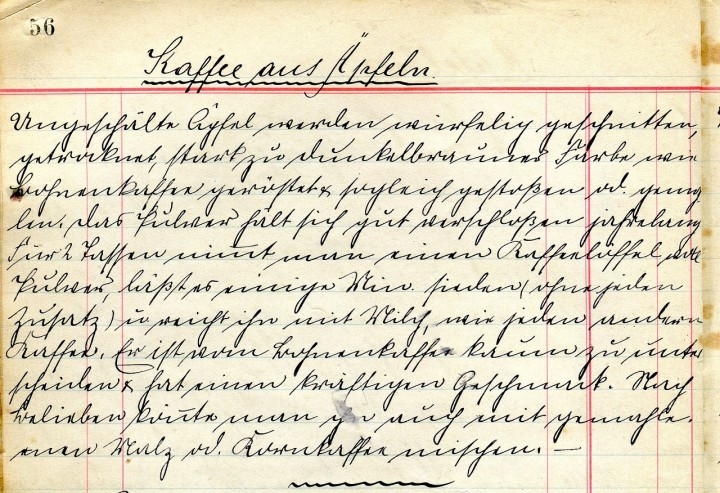 56
Kaffee aus Äpfeln.
Ungeschälte Äpfel werden würfelig geschnitten,
getrocknet, stark zu dunkelbrauner Farbe wie
Bohnenkaffee geröstet & sogleich gestoßen od. gemah
len. Das Pulver hält sich gut verschloßen jahrelang
Für 2 Tassen nim̅t man einen Kaffeelöffel voll
Pulver, läßt es einige Min. sieden (ohne jeden
Zusatz) u reicht ihn mit Milch, wie jeden andern
Kaffee. Er ist vom Bohnenkaffee kaum zu unter
scheiden & hat einen kräftigen Geschmack. Nach
Belieben kön̅te man ihn auch mit gemahle-
enen Malz od. Kornkaffee mischen. —